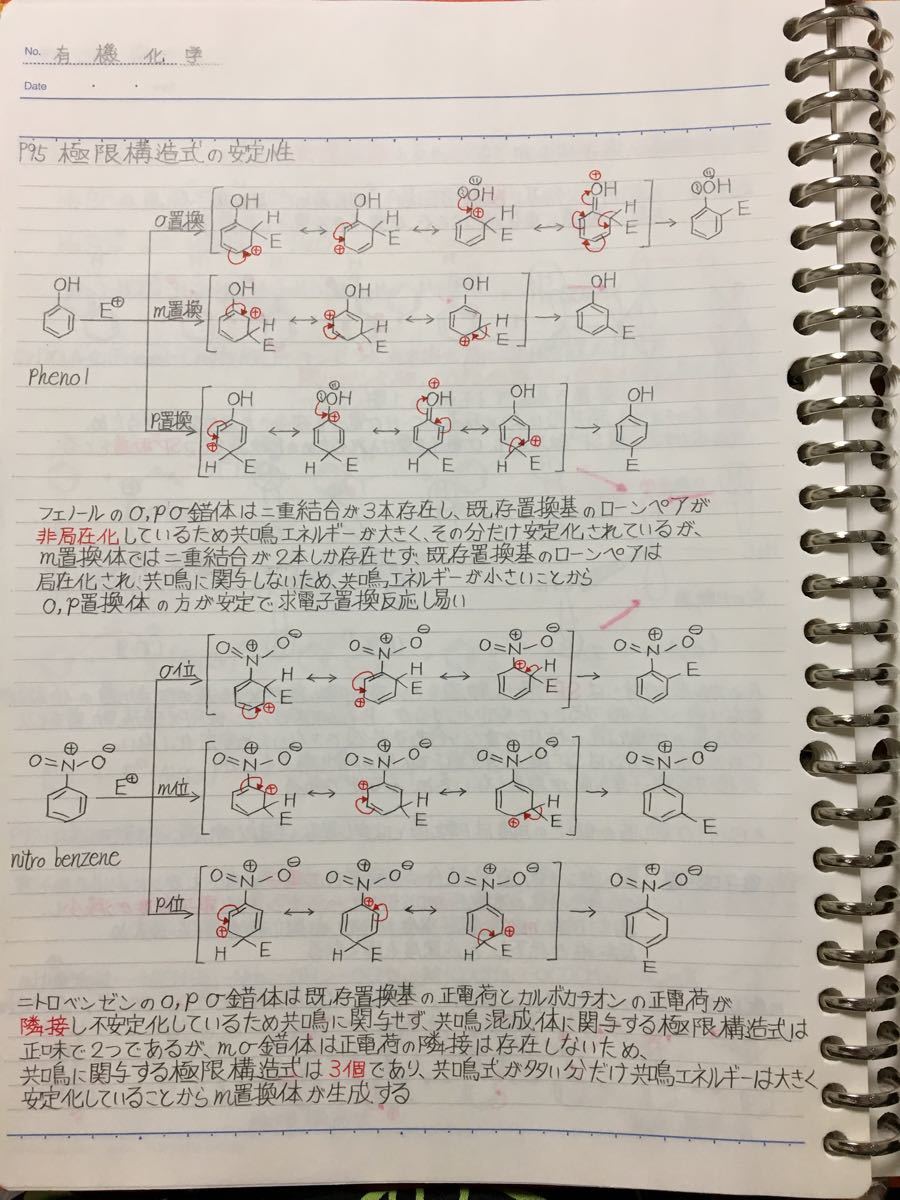 No. 有機化学
Date
P95 極限構造式の安定性
OH OH OH OH OH
o置換 H E H E H E H E E
OH OH OH OH OH
E⊕ m置換 H E H E H E E
Phenol
OH OH OH OH OH
p置換 H E H E H E H E E
フェノールのo,pσ錯体は二重結合が3本存在し、既存置換基のローンペアが
非局在化しているため共鳴エネルギーが大きく、その分だけ安定化されているが、
m置換体では二重結合が2本しか存在せず、既存置換基のローンペアは
局在化され、共鳴に関与しないため、共鳴エネルギーが小さいことから
o,p置換体の方が安定で求電子置換反応し易い
O=N⊕-O⊖ O=N⊕-O⊖ O=N⊕-O⊖ O=N⊕-O⊖
o位 H E H E H E E
O=N⊕-O⊖ O=N⊕-O⊖ O=N⊕-O⊖ O=N⊕-O⊖ O=N⊕-O⊖
E⊕ m位 H E H E H E E
nitro benzene
O=N⊕-O⊖ O=N⊕-O⊖ O=N⊕-O⊖ O=N⊕-O⊖
p位 H E H E H E E
ニトロベンゼンのo,pσ錯体は既存置換基の正電荷とカルボカチオンの正電荷が
隣接し不安定化しているため共鳴に関与せず、共鳴混成体に関与する極限構造式は
正味で2つであるが、mσ錯体は正電荷の隣接は存在しないため、
共鳴に関与する極限構造式は3個であり、共鳴式が多い分だけ共鳴エネルギーは大きく
安定化していることからm置換体が生成する